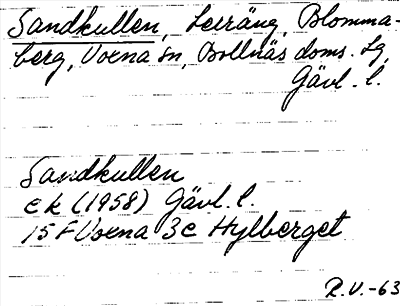 Sandkullen, Leiräng, Blomma-
berg, Voxna sn, Bollnäs doms. lg,
Gävl. l.
Sandkullen
ek (1958) Gävl. l.
15F Voxna 3c Hylberget
R.V.-63